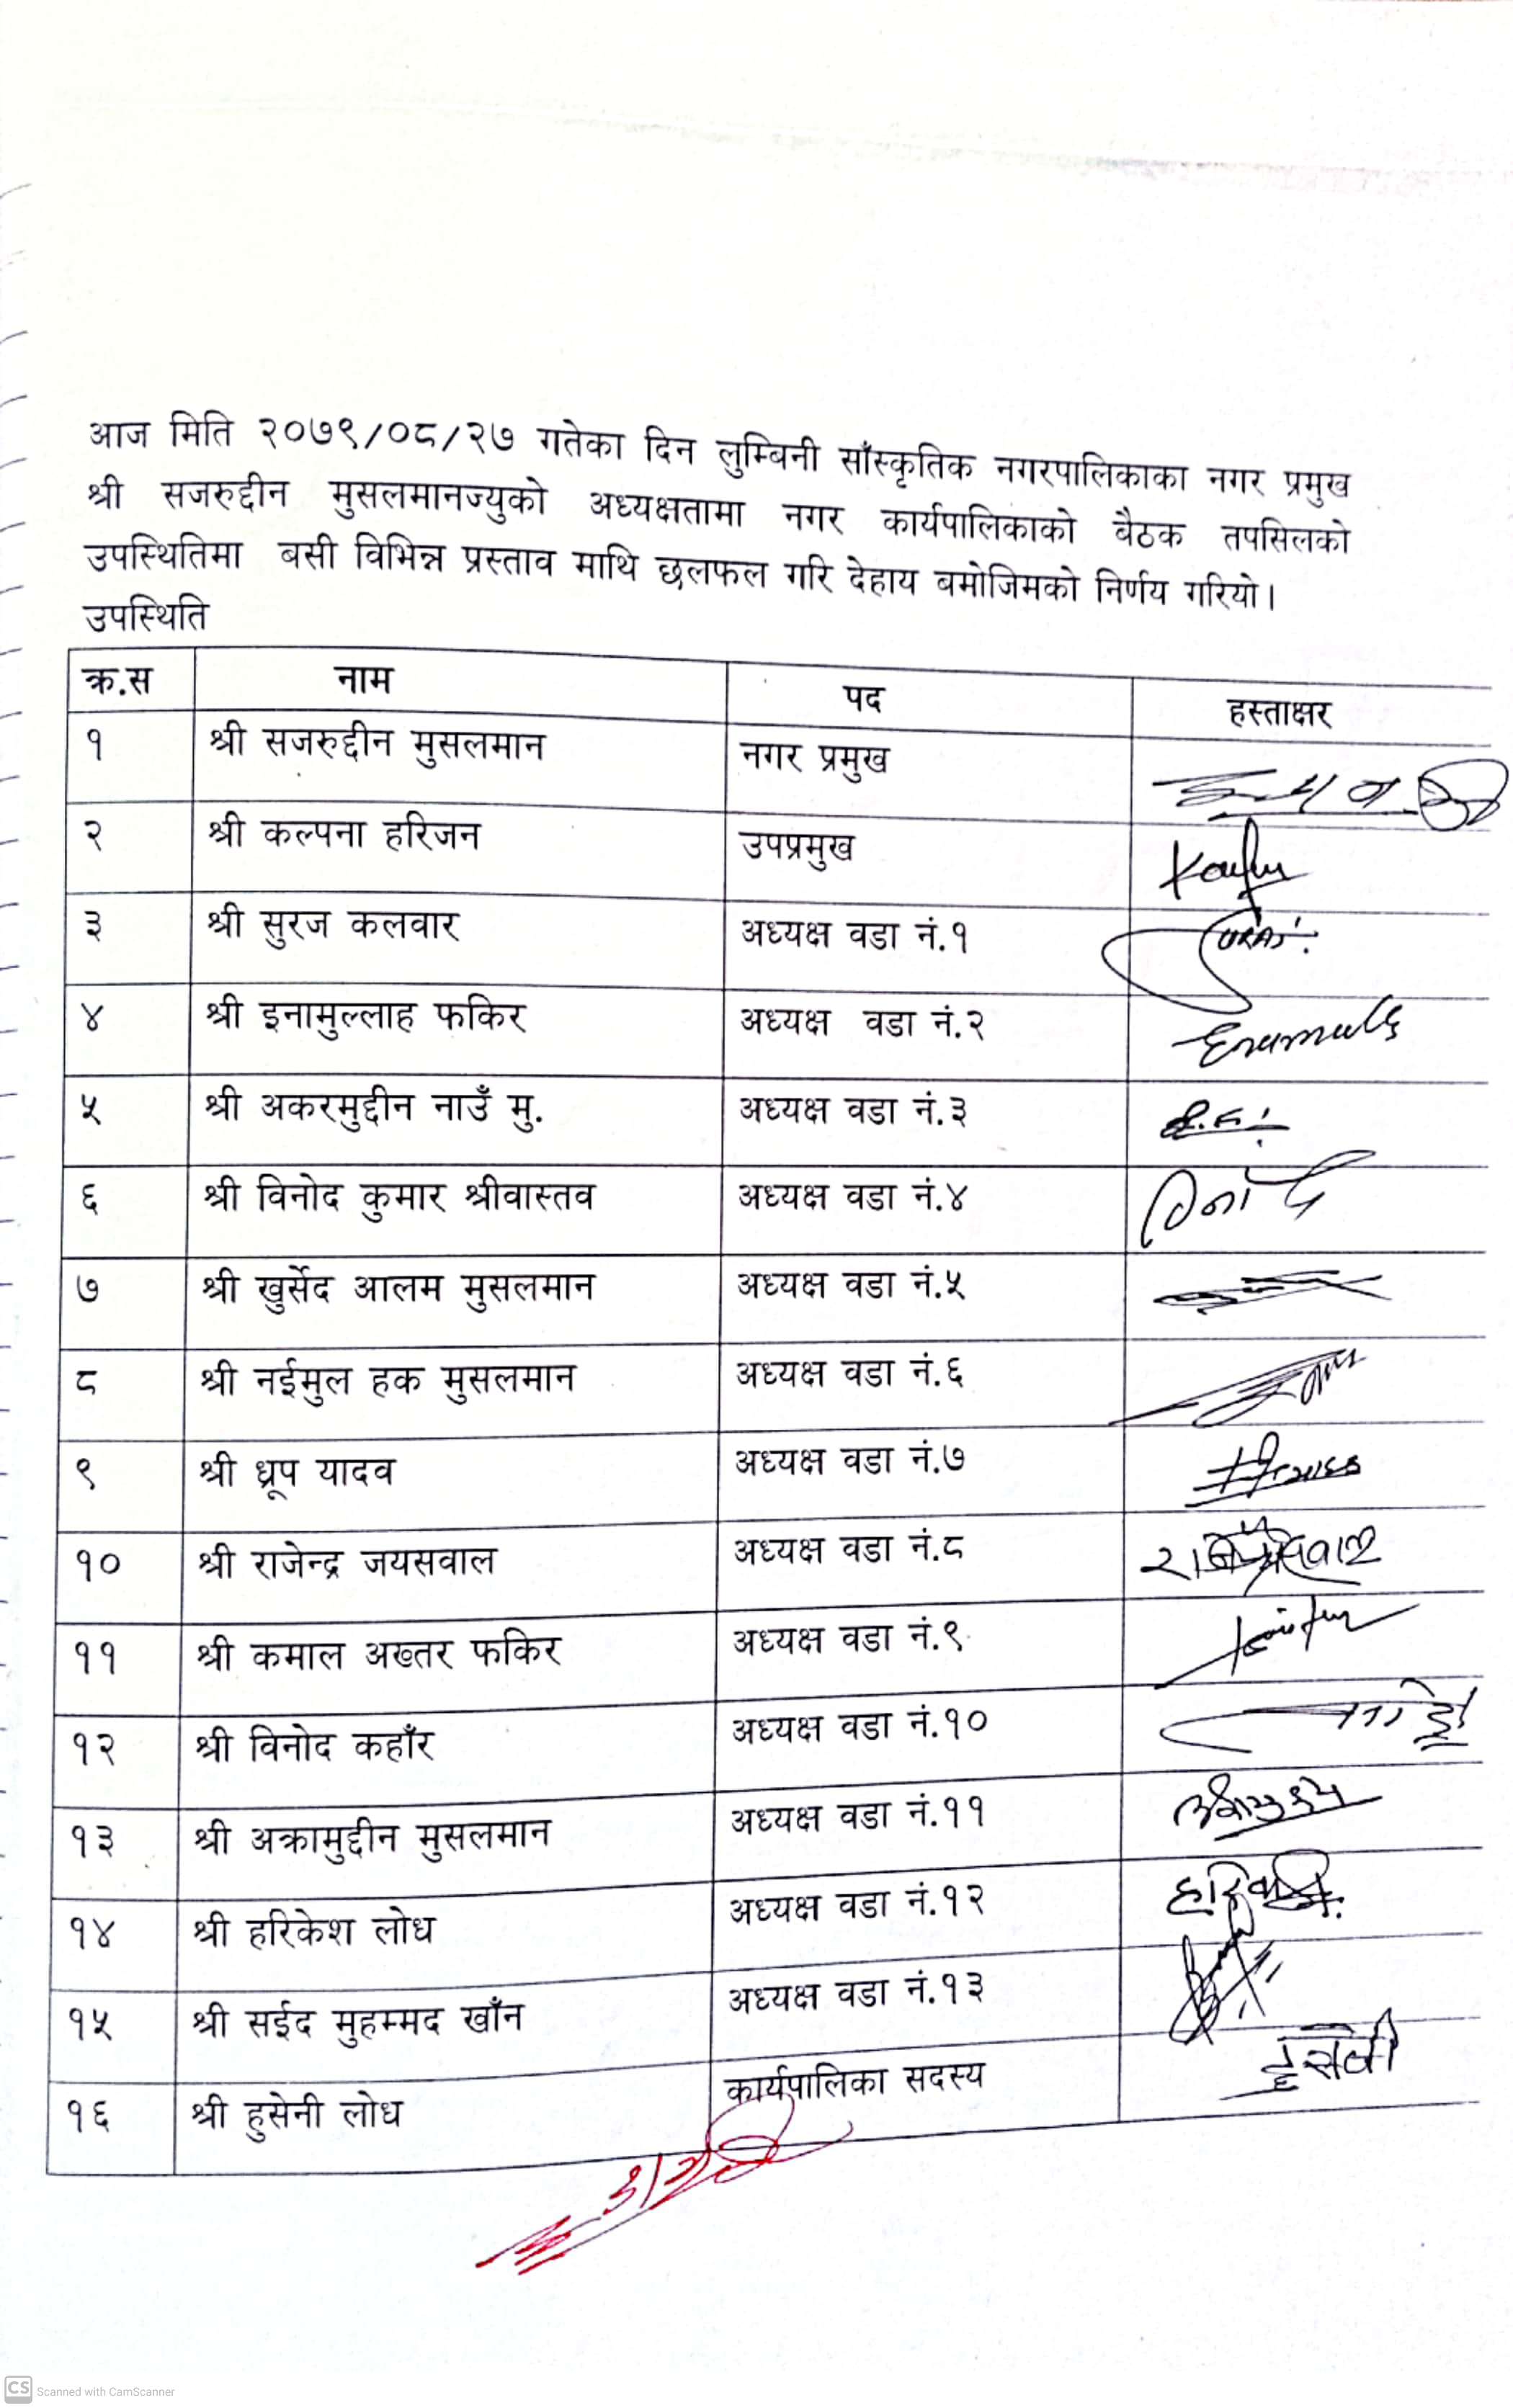 आज मिति २०७९/०८/२७ गतेका दिन लुम्बिनी साँस्कृतिक नगरपालिकाका नगर प्रमुख
श्री सजरुद्दीन मुसलमानज्युको अध्यक्षतामा नगर कार्यपालिकाको बैठक तपसिलको
उपस्थितिमा बसी विभिन्न प्रस्ताव माथि छलफल गरि देहाय बमोजिमको निर्णय गरियो।
उपस्थिति
क्र.स नाम पद हस्ताक्षर
१ श्री सजरुद्दीन मुसलमान नगर प्रमुख
२ श्री कल्पना हरिजन उपप्रमुख
३ श्री सुरज कलवार अध्यक्ष वडा नं.१
४ श्री इनामुल्लाह फकिर अध्यक्ष वडा नं.२
५ श्री अकरमुद्दीन नाउँ मु. अध्यक्ष वडा नं.३
६ श्री विनोद कुमार श्रीवास्तव अध्यक्ष वडा नं.४
७ श्री खुर्सेद आलम मुसलमान अध्यक्ष वडा नं.५
८ श्री नईमुल हक मुसलमान अध्यक्ष वडा नं.६
९ श्री ध्रूप यादव अध्यक्ष वडा नं.७
१० श्री राजेन्द्र जयसवाल अध्यक्ष वडा नं.८
११ श्री कमाल अख्तर फकिर अध्यक्ष वडा नं.९
१२ श्री विनोद कहाँर अध्यक्ष वडा नं.१०
१३ श्री अक्रामुद्दीन मुसलमान अध्यक्ष वडा नं.११
१४ श्री हरिकेश लोध अध्यक्ष वडा नं.१२
१५ श्री सईद मुहम्मद खाँन अध्यक्ष वडा नं.१३
१६ श्री हुसेनी लोध कार्यपालिका सदस्य
CS Scanned with CamScanner